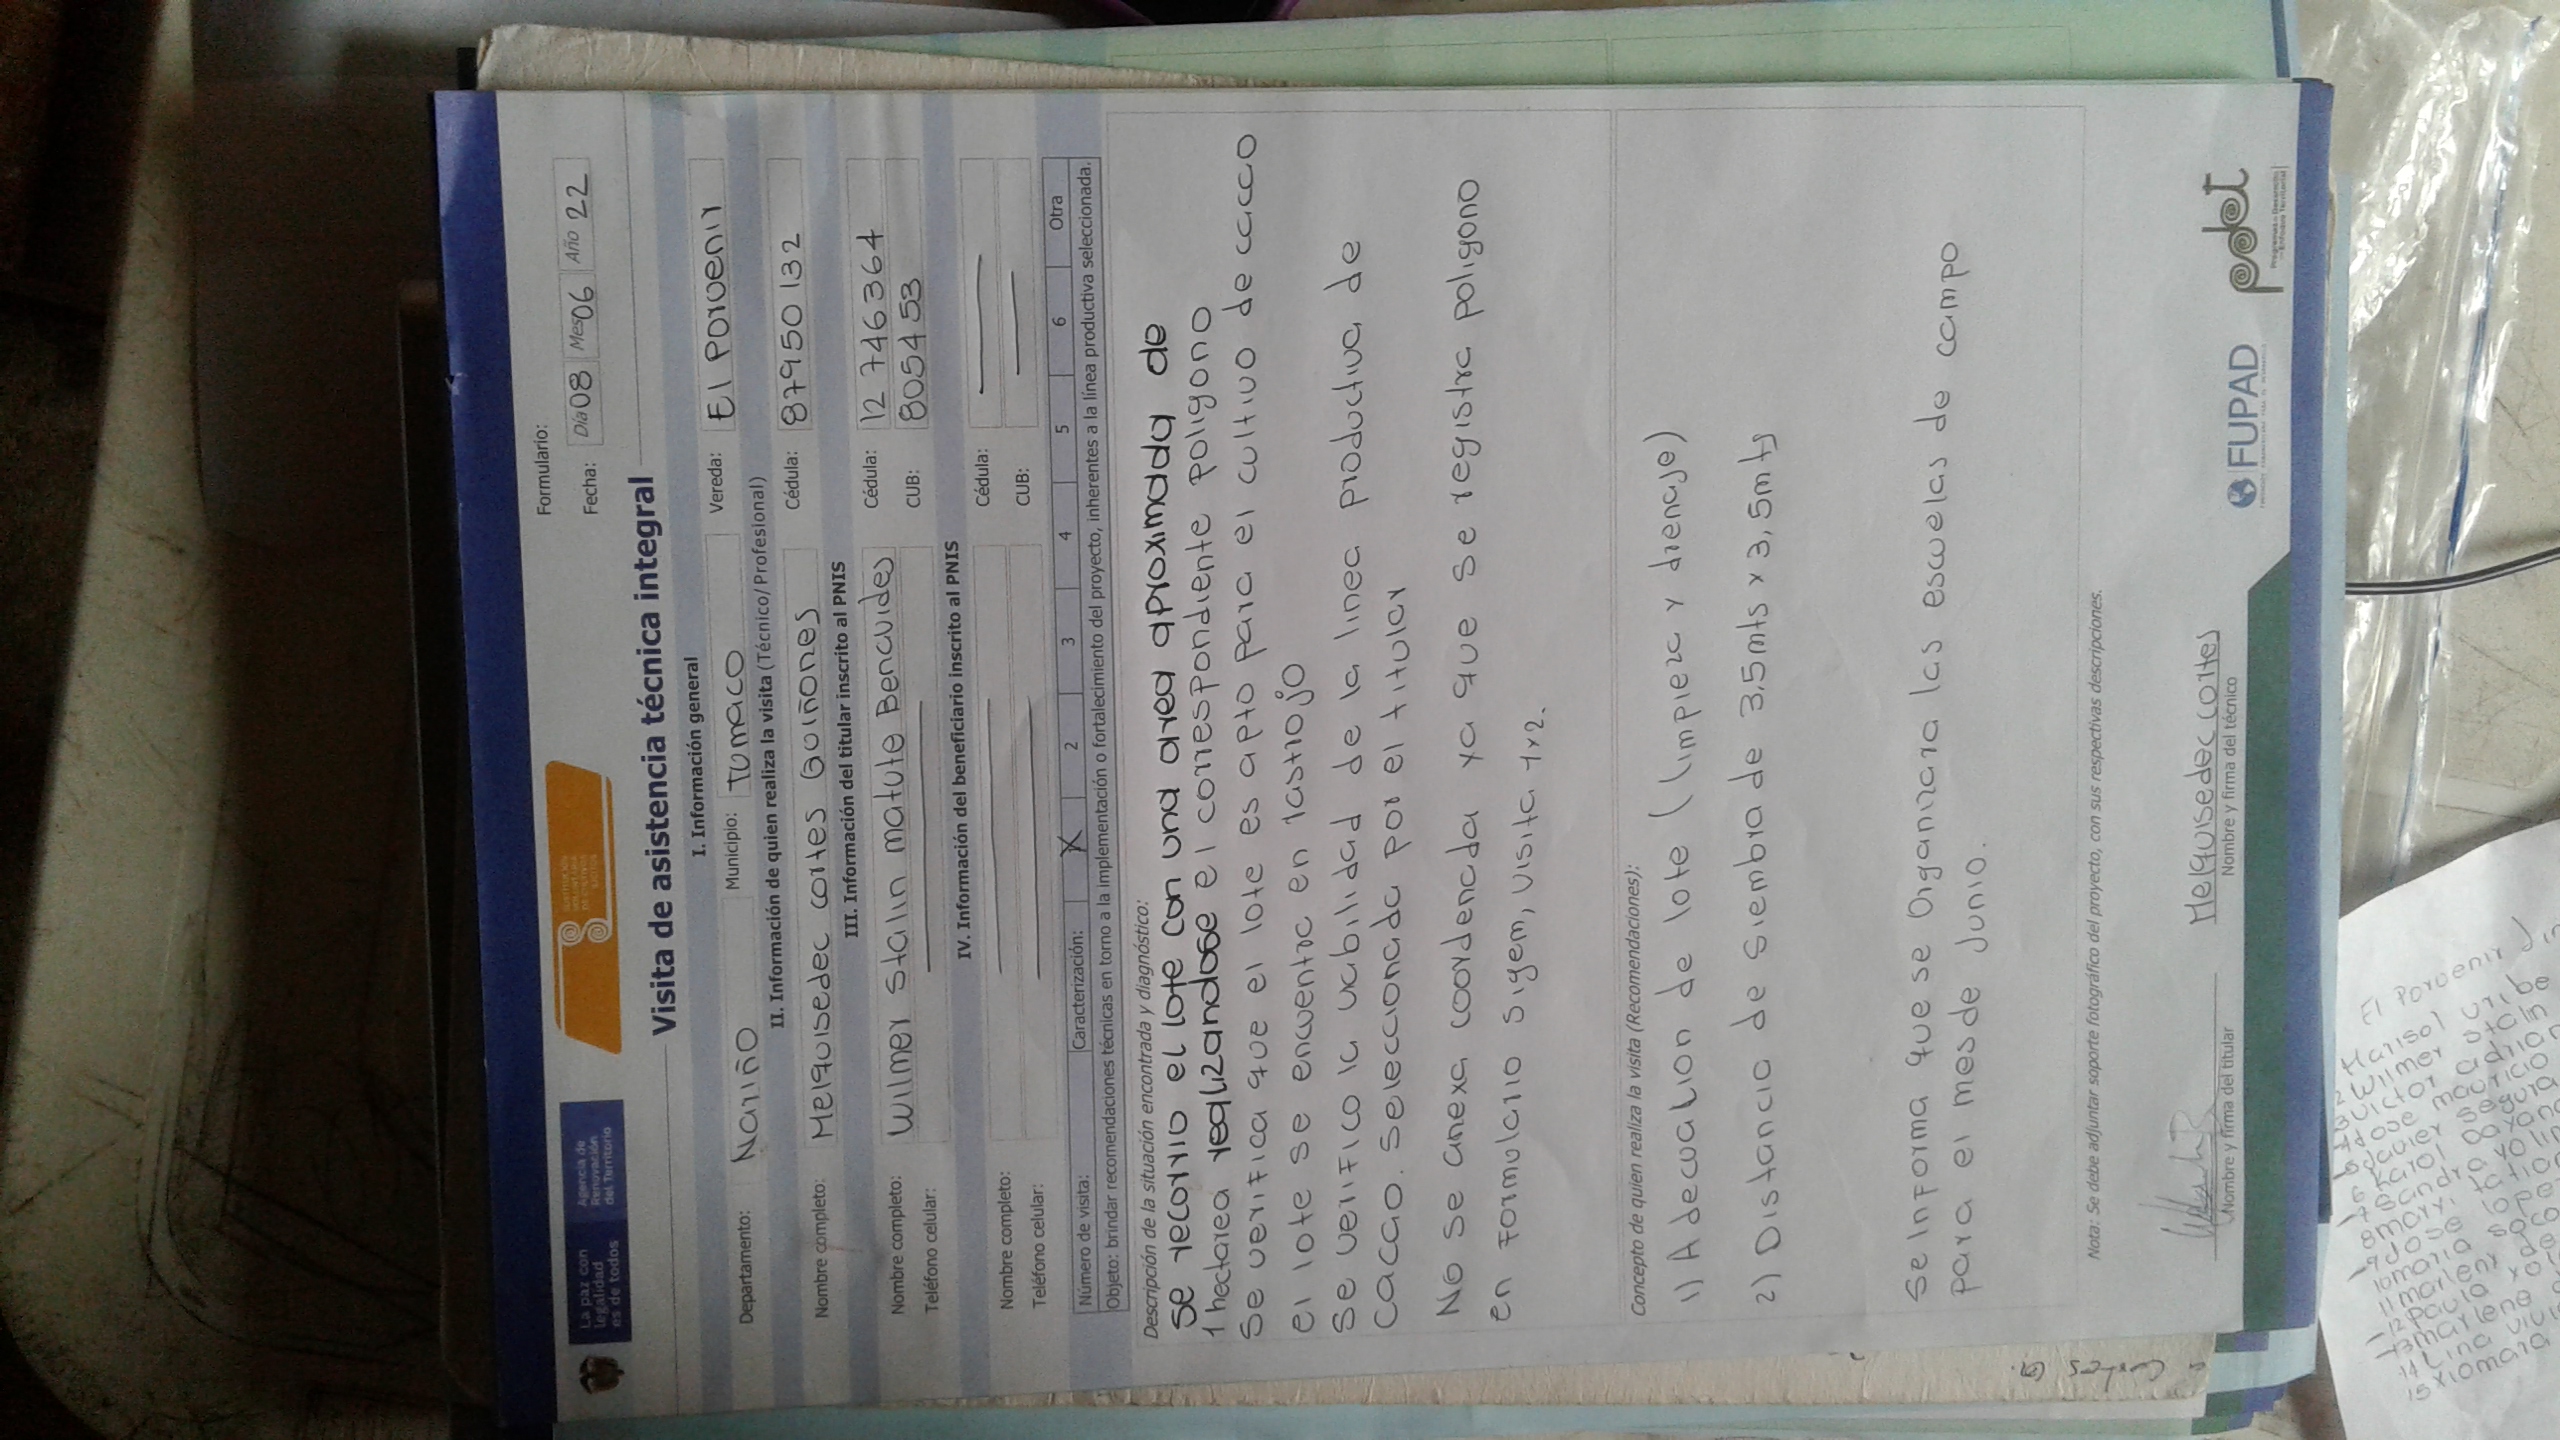 La paz con
legalidad
es de todos
Agencia de
Renovación
del Territorio
Formulario:
Fecha: Día 08 Mes 06 Año 22
Visita de asistencia técnica integral
I. Información general
Departamento: Nariño Municipio: Tumaco Vereda: El Porvenir
II. Información de quien realiza la visita (Técnico/Profesional)
Nombre completo: Melquisedec cortes Quiñones Cédula: 87950132
III. Información del titular inscrito al PNIS
Nombre completo: Wilmer Stalin matute Benavides Cédula: 12746364
Teléfono celular: CUB: 805453
IV. Información del beneficiario inscrito al PNIS
Nombre completo: Cédula:
Teléfono celular: CUB:
Número de visita: Caracterización: X 2 3 4 5 6 Otra
Objeto: brindar recomendaciones técnicas en torno a la implementación o fortalecimiento del proyecto, inherentes a la línea productiva seleccionada.
Descripción de la situación encontrada y diagnóstico:
Se recorrio el lote con una area aproximada de
1 hectarea realizandose el correspondiente poligono
Se verifica que el lote es apto para el cultivo de cacao
el lote se encuentra en rastrojo
Se verifico la vabilidad de la linea productiva de
cacao. Seleccionada por el titular
No se anexa coordenada ya que se registra poligono
en Formulario sigem, visita 1y2.
Concepto de quien realiza la visita (Recomendaciones):
1) Adecuacion de lote (limpieza y drenaje)
2) Distancia de siembra de 3.5mts x 3,5mts
Se informa que se organizara las escuelas de campo
para el mes de Junio.
Nota: Se debe adjuntar soporte fotográfico del proyecto, con sus respectivas descripciones.
Nombre y firma del titular
Melquisedec cortes
Nombre y firma del técnico
FUPAD
pdet
El Porvenir
Marisol uribe
2 Wilmer stalin
3 Victor adrian
4 Jose mauricio
5 Javier segura
6 Karol